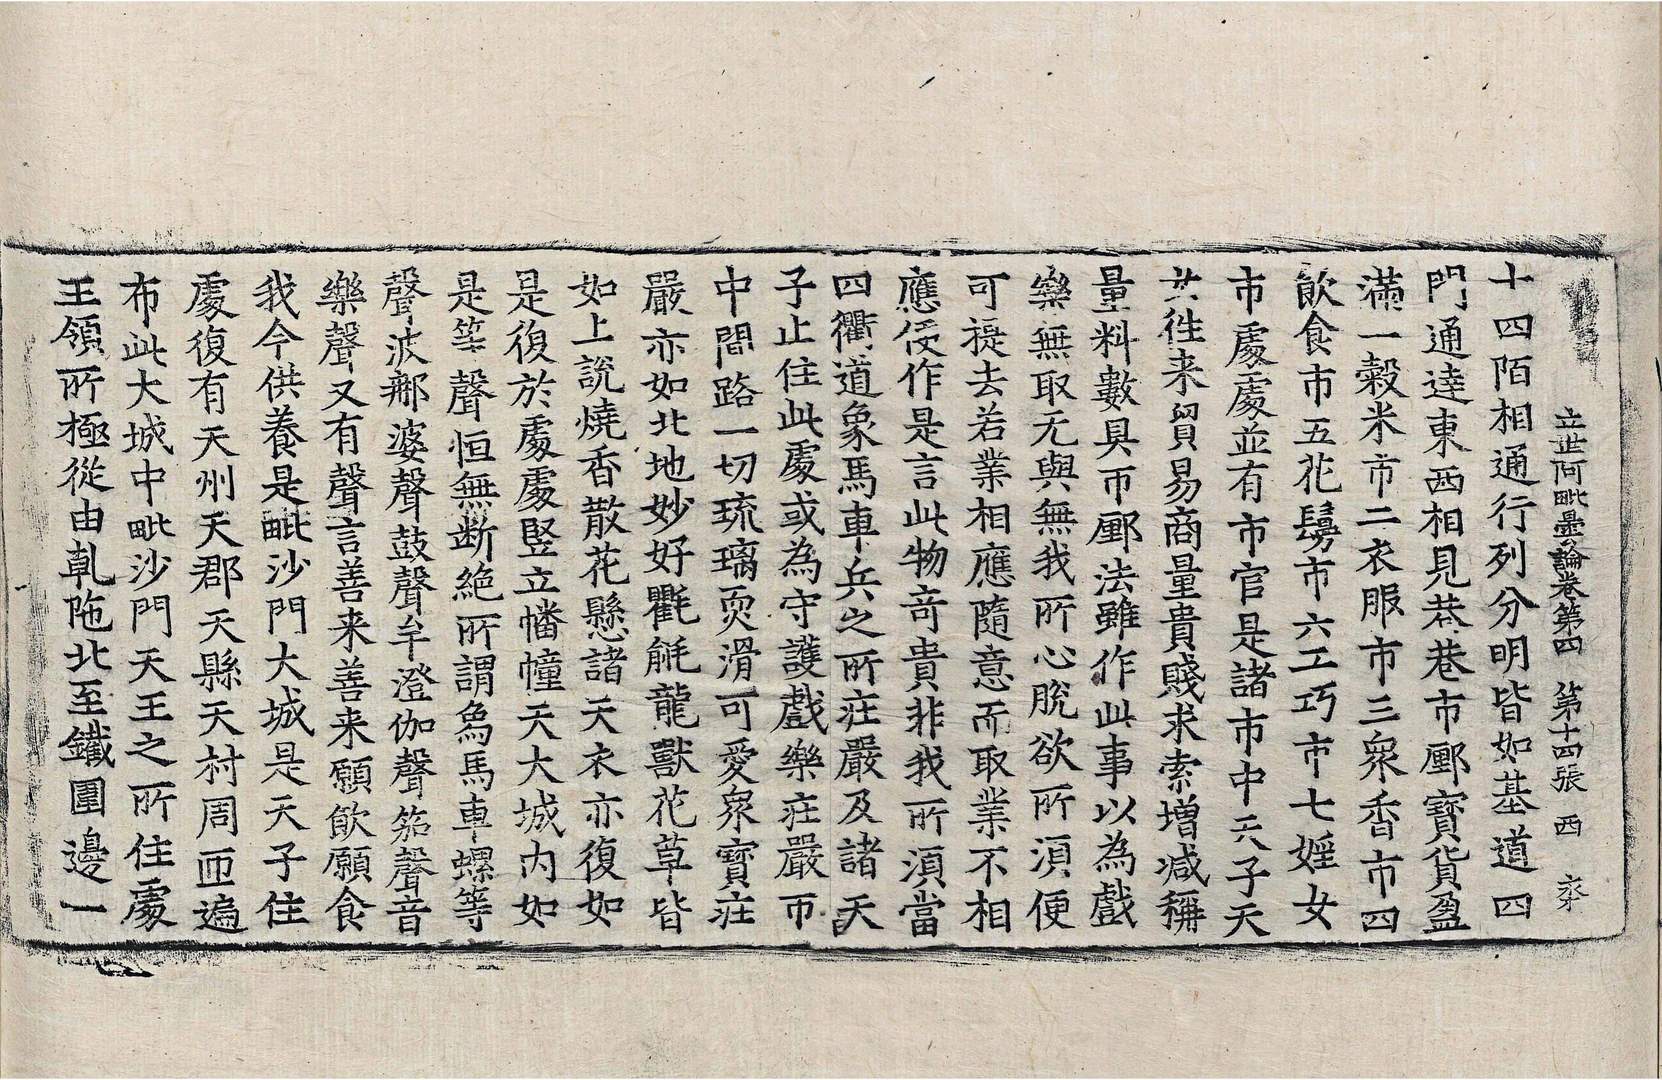 立世阿毗曇論卷第四　第十四張　西
十四陌相通行列分明皆如基道四
門通達東西相見巷巷市鄽寶貨盈
滿一穀米市二衣服市三衆香市四
飲食市五花鬘市六工巧市七婬女
市處處並有市官是諸市中天子天
共往来貿易商量貴賤求索增減稱
量料數具市鄽法雖作此事以為戲
樂無取无與無我所心脫欲所湏便
可提去若業相應隨意而取業不相
應便作是言此物竒貴非我所湏當
四衢道象馬車兵之所莊嚴及諸天
子止住此處或為守護戲樂莊嚴市
中間路一切琉璃耎滑可愛衆寶莊
嚴亦如北地妙好氍毹龍獸花草皆
如上說燒香散花懸諸天衣亦復如
是復於處處竪立幡幢天大城内如
是等聲恒無断絶所謂象馬車螺等
聲波那婆聲鼓聲牟澄伽聲笳聲音
樂聲又有聲言善来善来願飲願食
我今供養是毗沙門大城是天子住
處復有天州天郡天縣天村周匝遍
布此大城中毗沙門天王之所住處
王領所極從由乹陁北至鐵圍邊一